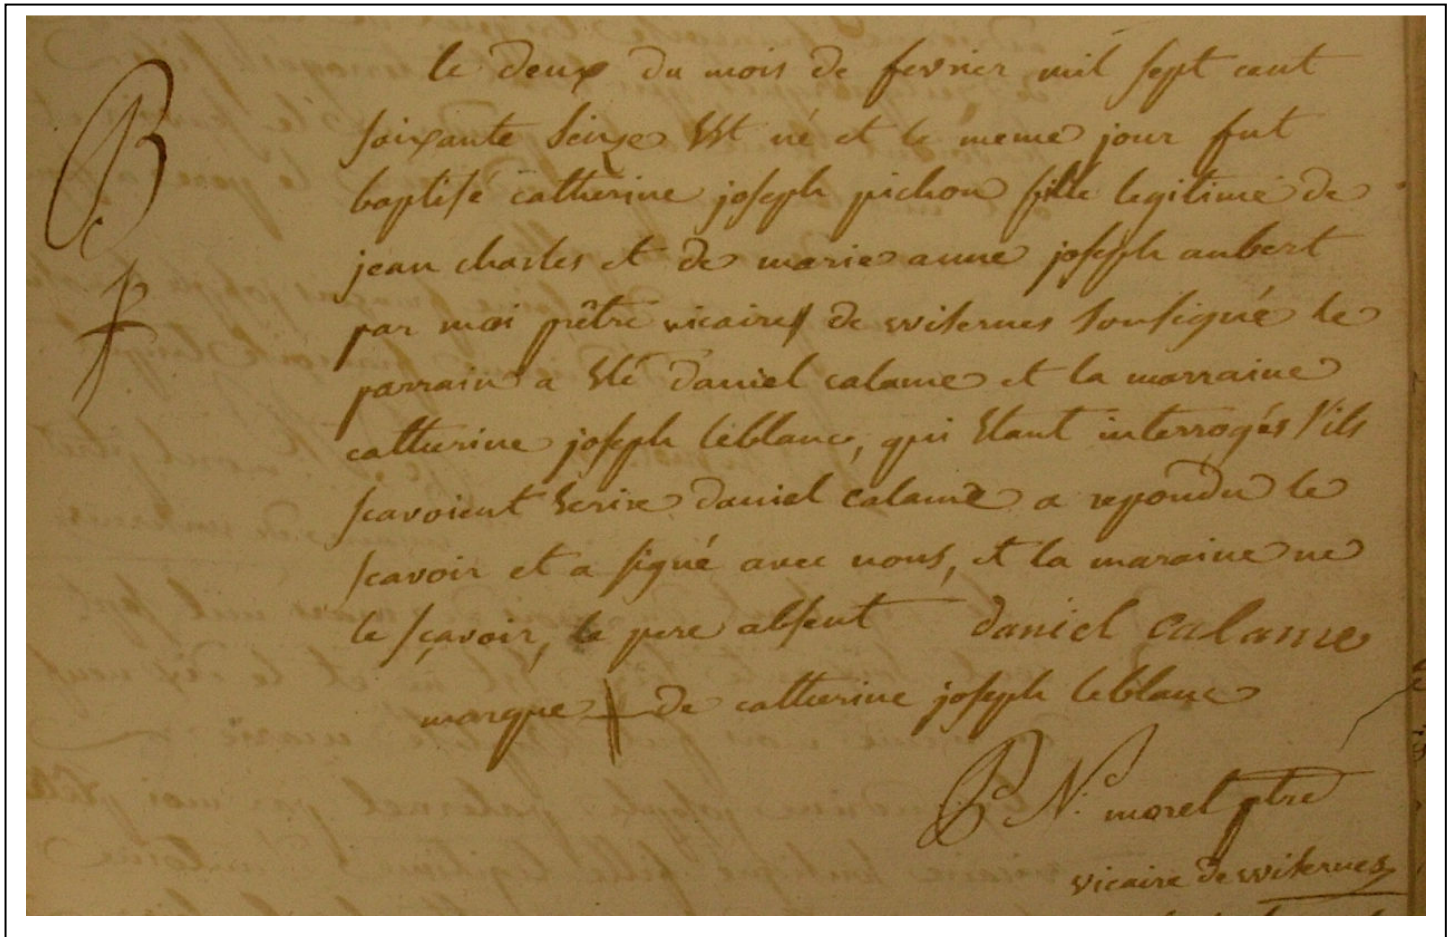 B
le deux du mois de fevrier mil sept cent
soixante seize Est né et le meme jour fut
baptisé catherine joseph pichon fille legitime de
jean charles et de marie anne joseph aubert
par moi prêtre vicaire de wisernes sousigné le
parrain a Eté daniel calame et la marraine
catherine joseph leblanc, qui Etant interrogés s'ils
scavoient Ecrire daniel calame a repondu le
scavoir et a signé avec nous, et la maraine ne
le sçavoir, le pere absent daniel calame
marque de catherine joseph leblanc
N. morel ptre
vicaire de wisernes